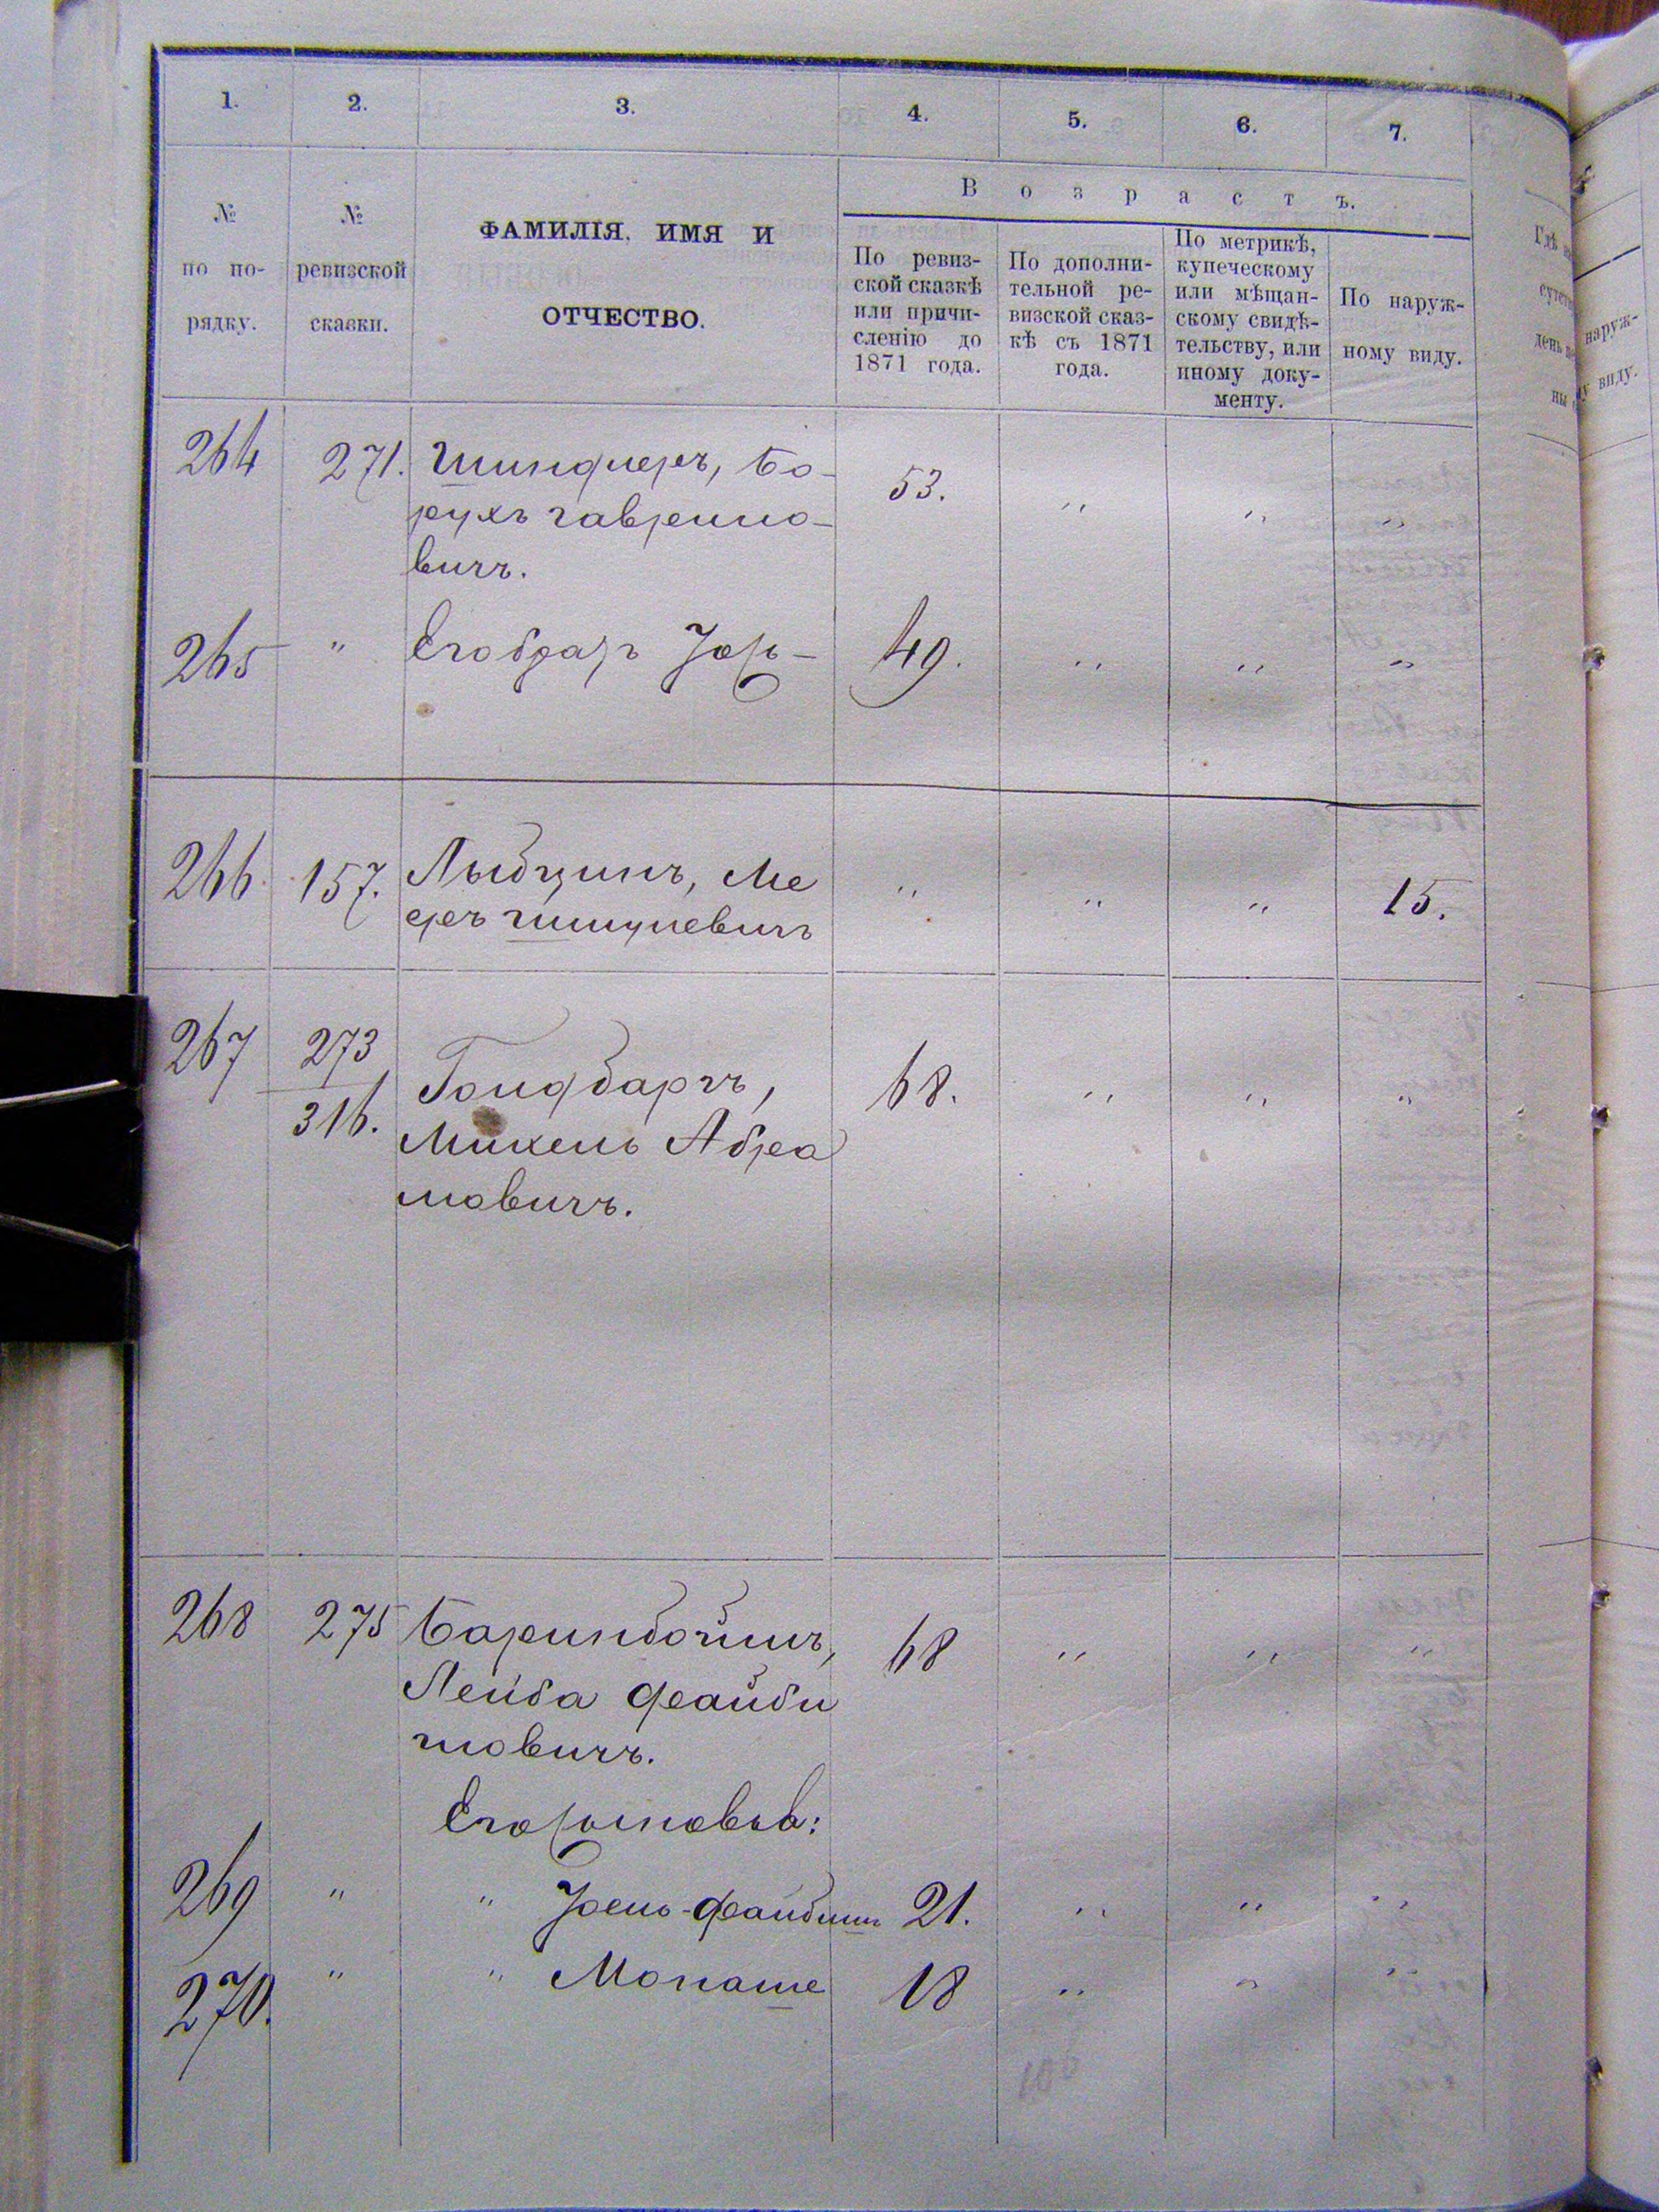 1. 2. 3. 4. 5. 6. 7.
№ по по-рядку.
№ ревизской сказки.
ФАМИЛІЯ, ИМЯ И
ОТЧЕСТВО.
В о з р а с т ъ.
По ревиз-
ской сказкѣ
или причи-
сленію до
1871 года.
По дополни-
тельной ре-
визской сказ-
кѣ съ 1871
года.
По метрикѣ,
купеческому
или мѣщан-
скому свидѣ-
тельству, или
иному доку-
менту.
По наруж-
ному виду.
264 271. Шиндлеръ, Бо- 53. " " "
рухъ Гаврило-
вичъ.
265 " Его братъ 49. " " "
266 157. Ме " " " 15.
еръ
267 273 68. " " "
316. Гольдбаргъ,
Михель Абра
мовичъ.
268 275 Баринбоймъ, 68 " " "
Лейба Файби
шовичъ.
Его сыновья:
269 " " 21. " " "
270. " " Монаше 18 " " "
наруж-
у виду.